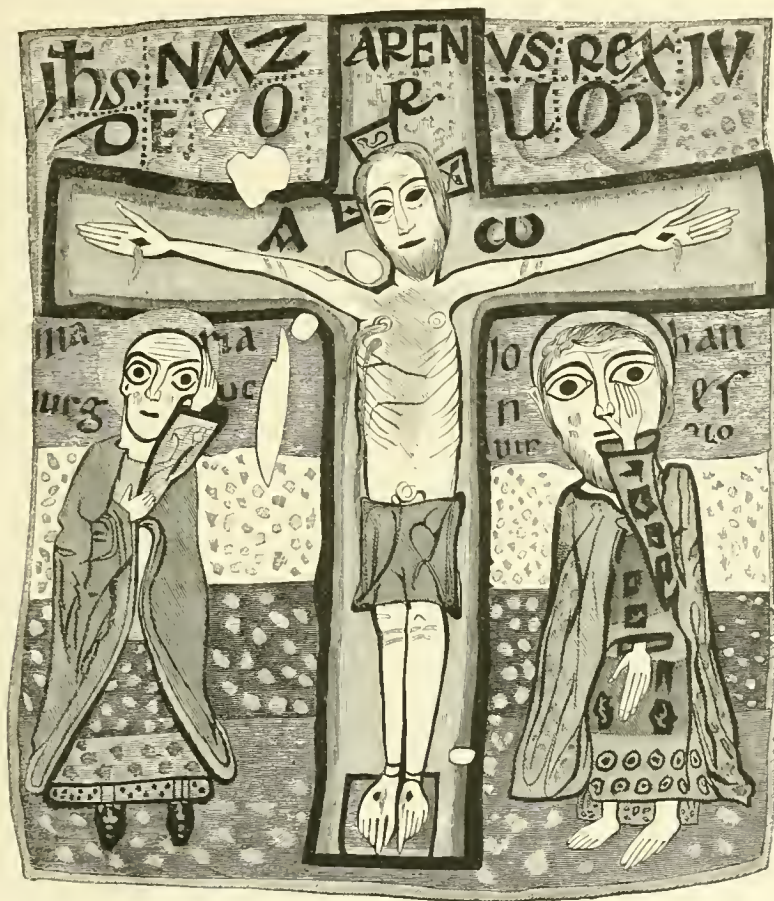 jhs NAZ ARENVS REX JV
DE O R UM
A ω
MA RIA
Jo han
n es